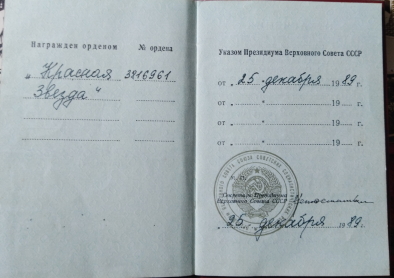 Награжден орденом № ордена
"Красная 3816961
Звезда"
Указом Президиума Верховного Совета СССР
от "25" декабря 1989 г.
от " " 19 г.
от " " 19 г.
от " " 19 г.
Секретарь Президиума
Верховного Совета СССР
"25" декабря 1989 г.